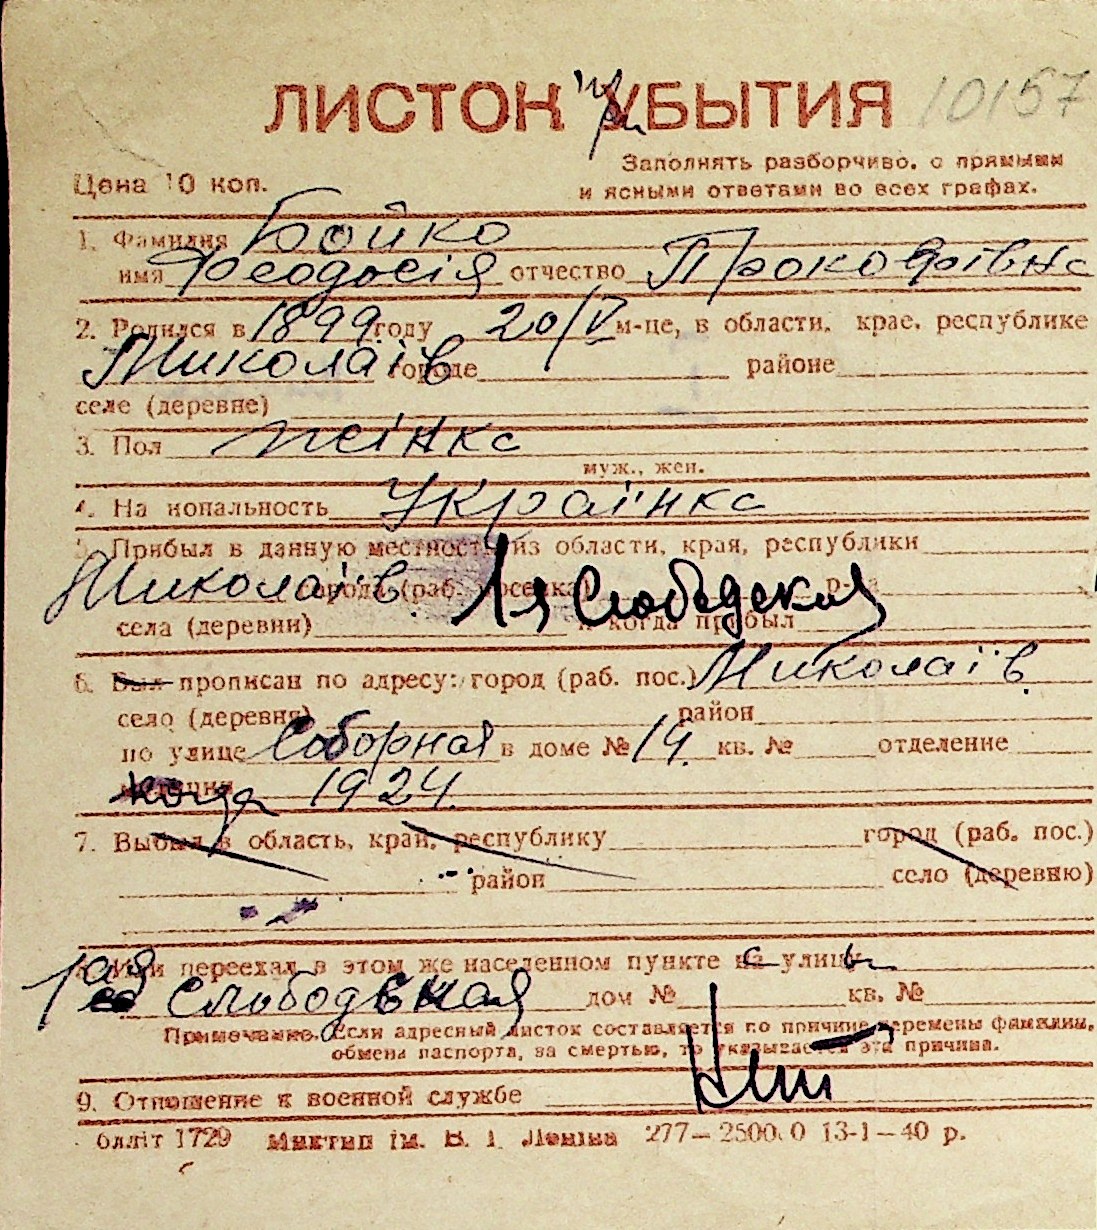 ЛИСТОК УБЫТИЯ 10157
при
Заполнять разборчиво, с прямыми
Цена 10 коп. и ясными ответами во всех графах.
1. Фамилия Бойко
имя Феодосія отчество Прокофівна
2. Родился в 1899 году 20/V м-це, в области, крае, республике
Миколаїв городе районе
селе (деревне)
3. Пол жінка
муж., жен.
4. На иональность Українка
5. Прибыл в данную местность из области, края, республики
Миколаїв города (раб. поселка) 1я Слободская р-на
села (деревни) и когда прибыл
6. Был прописан по адресу: город (раб. пос.) Миколаїв
село (деревня) район
по улице Соборная в доме № 14 кв. № отделение
милиции когда 1924.
7. Выбыл в область, край, республику город (раб. пос.)
район село (деревню)
8. Или переехал в этом же населенном пункте на улицу
1ая Слободская дом № кв. №
Примечание. Если адресный листок составляется по причине перемены фамилии,
обмена паспорта, за смертью, то указывается эта причина.
9. Отношение к военной службе Нет
блліт 1729 Миктип ім. В. І. Леніна 277—25000 13-1—40 р.